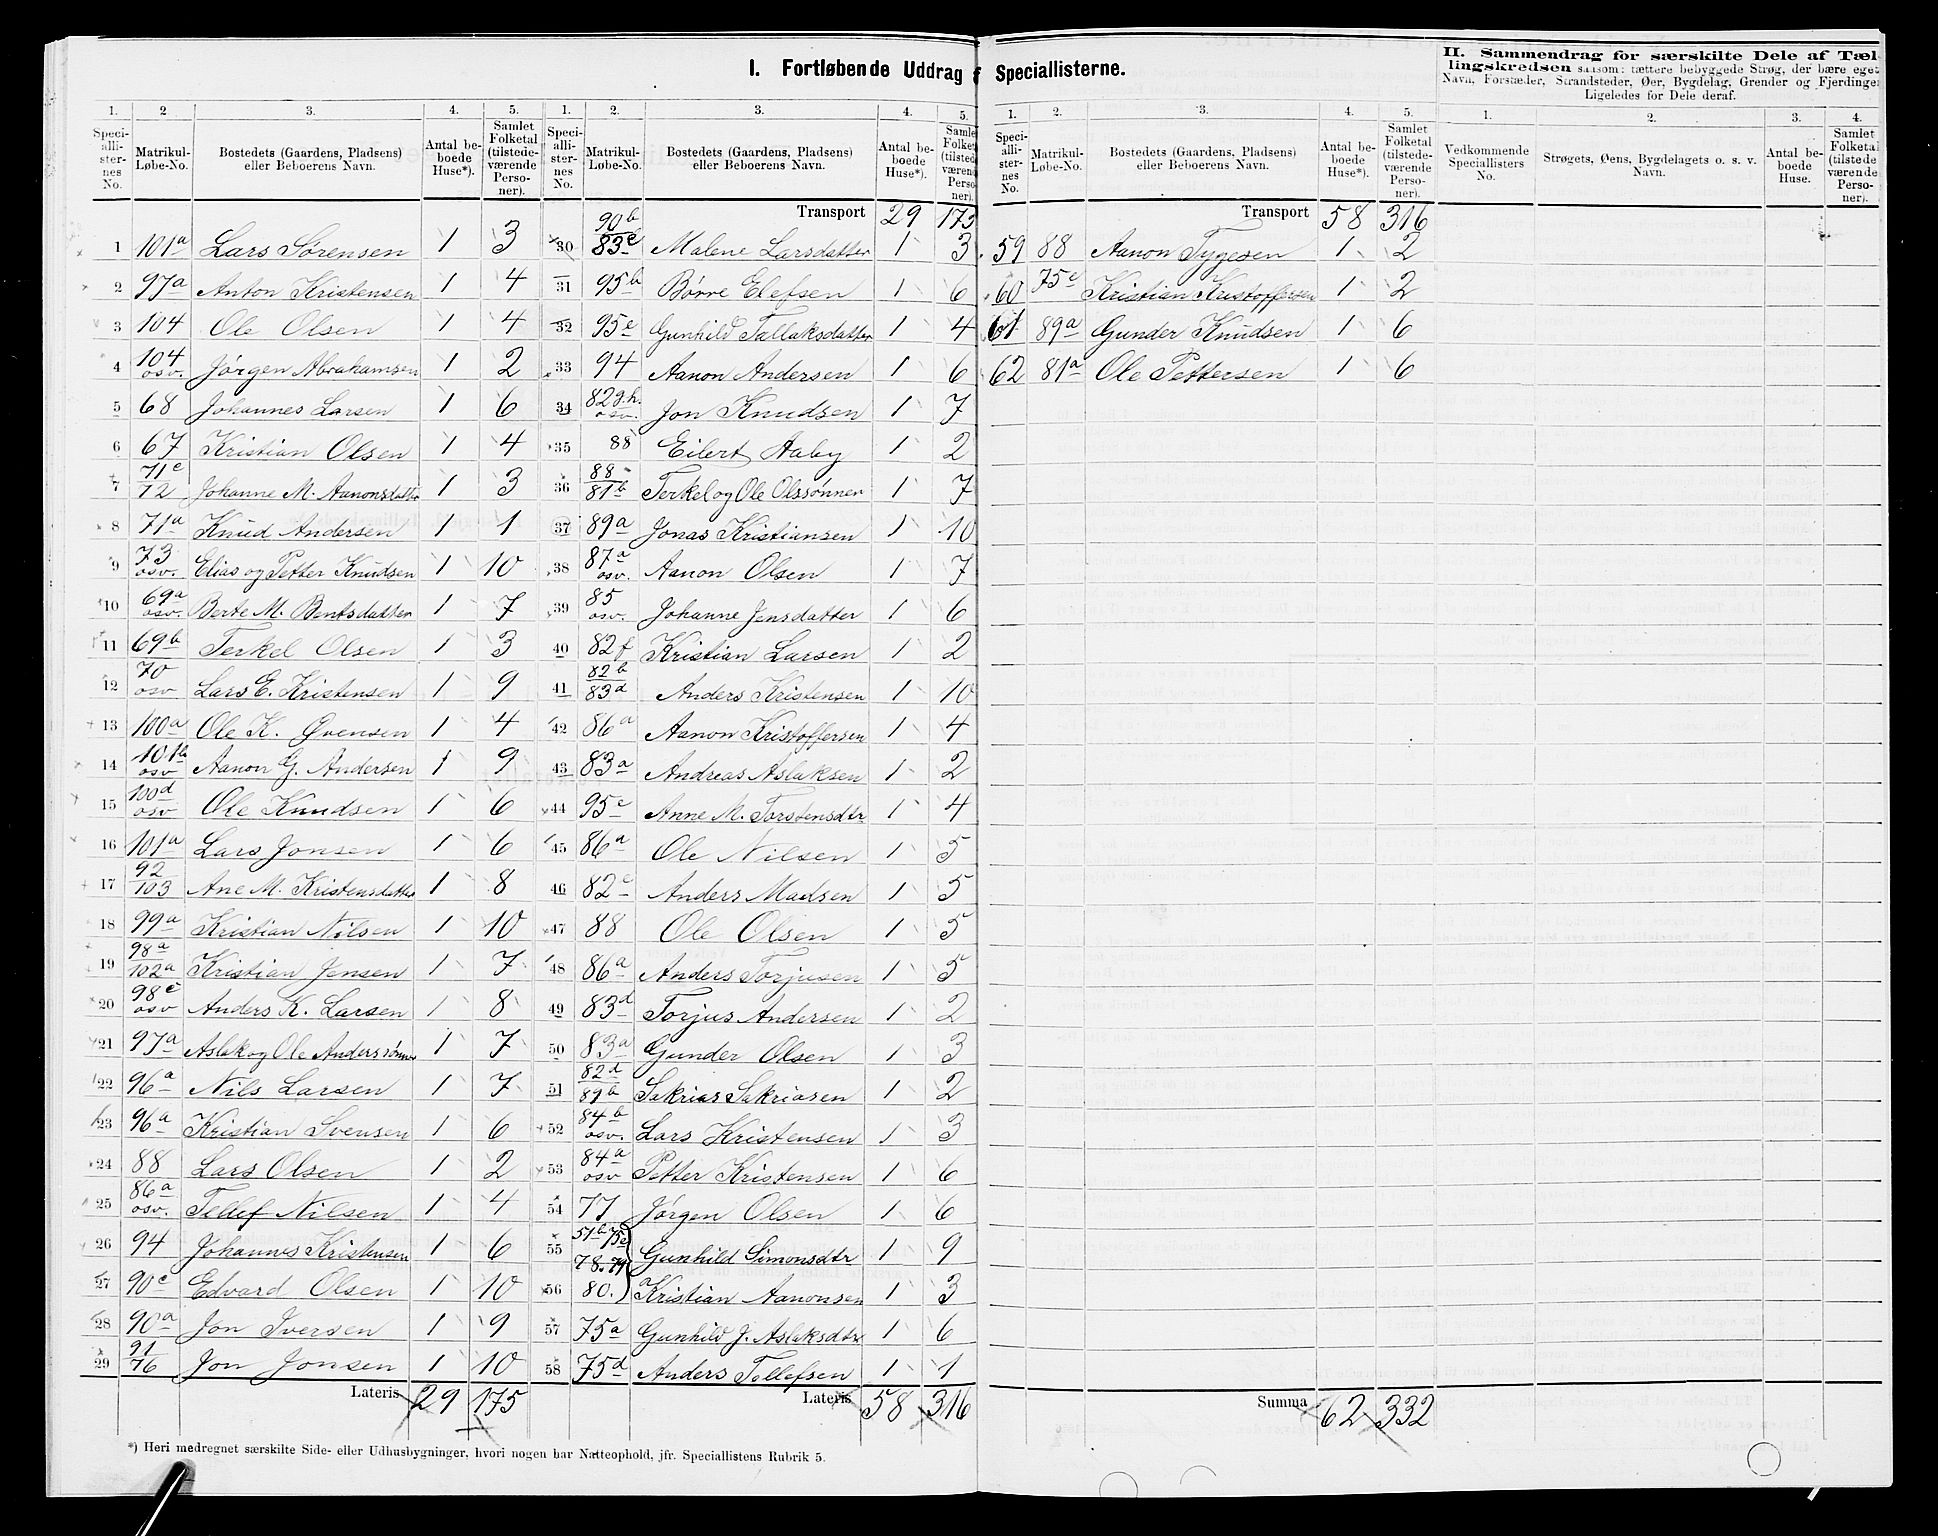 I. Fortløbende Uddrag af Speciallisterne.
II. Sammendrag for særskilte Dele af Tællingskredsen saasom: tættere bebyggede Strøg, der bære eget Navn, Forstæder, Strandsteder, Øer, Bygdelag, Grender og Fjerdinger. Ligeledes for Dele deraf.
1. 2 3. 4. 5.
Speciallisternes No. Matrikul-Løbe-No. Bostedets (Gaardens, Pladsens) eller Beboerens Navn. Antal beboede Huse*). Samlet Folketal (tilstedeværende Personer).
1 101a Lars Sørensen 1 3
2 97a Anton Kristensen 1 4
3 104 Ole Olsen 1 4
4 104 osv. Jørgen Abrahamsen 1 2
5 68 Johannes Larsen 1 6
6 67 Kristian Olsen 1 4
7 71c 72 Johanne M. Aanonsdatter 1 3
8 71a Knud Andersen 1 1
9 73 osv. Elias og Petter Knudsen 1 10
10 69a osv. Berte M. Bentsdatter 1 7
11 69b Terkel Olsen 1 3
12 70 osv Lars E. Kristensen 1 9
13 100a Ole K. Øvensen 1 4
14 101b osv Aanon G. Andersen 1 9
15 100d osv Ole Knudsen 1 6
16 101a Lars Jonsen 1 6
17 92 103 Ane M. Kristensdatter 1 8
18 99a Kristian Nilsen 1 10
19 98a 102a Kristian Jensen 1 7
20 98c osv Anders K. Larsen 1 8
21 97a Aslak og Ole Anderssønner 1 7
22 96a Nils Larsen 1 7
23 96a Kristian Svensen 1 6
24 88 Lars Olsen 1 2
25 86a osv. Tellef Nilsen 1 4
26 94 Johannes Kristensen 1 6
27 90c Edvard Olsen 1 10
28 90a Jon Iversen 1 9
29 91 76 Jon Jonsen 1 10
Lateris 29 175
1. 2. 3. 4. 5.
Speciallisternes No. Matrikul-Løbe-No. Bostedets (Gaardens, Pladsens) eller Beboerens Navn. Antal beboede Huse*). Samlet Folketal (tilstedeværende Personer).
Transport 29 175
30 90b 83c Malene Larsdatter 1 3
31 95b Børre Elefsen 1 6
32 95c Gunhild Tallaksdatter 1 4
33 94 Aanon Andersen 1 6
34 82g.h. osv. Jon Knudsen 1 7
35 88 Eilert Aaby 1 2
36 88 81b Terkel og Ole Olssønner 1 7
37 89a Jonas Kristiansen 1 10
38 87a osv. Aanon Olsen 1 7
39 85 osv. Johanne Jensdatter 1 6
40 82f Kristian Larsen 1 2
41 82b 83d Anders Kristensen 1 10
42 86a Aanon Kristoffersen 1 4
43 83a Andreas Aslaksen 1 2
44 95c Anne M. Torstensdtr 1 4
45 86a Ole Nilsen 1 5
46 82c Anders Madsen 1 5
47 88 Ole Olsen 1 5
48 86a Anders Torjusen 1 5
49 83d Torjus Andersen 1 2
50 83a Gunder Olsen 1 3
51 82d 89b Sakrias Sakriasen 1 2
52 84b osv. Lars Kristensen 1 3
53 84a osv Petter Kristensen 1 6
54 77 Jørgen Olsen 1 6
55 51b 75c 78. 79 Gunhild Simonsdtr 1 9
56 80. Kristian Aanonsen 1 3
57 75a Gunhild J. Aslaksdtr 1 6
58 75d Anders Tellefsen 1 1
Lateris 58 316
1. 2. 3. 4. 5.
Speciallisternes No. Matrikul-Løbe-No. Bostedets (Gaardens. Pladsens) eller Beboerens Navn. Antal beboede Huse*). Samlet Folketal (tilstedeværende Personer).
Transport 58 316
59 88 Aanon Tygesen 1 2
60 75c Kristian Kristoffersen 1 2
61 89a Gunder Knudsen 1 6
62 81a Ole Pettersen 1 6
Summa 62 332
1. 2. 3. 4.
Vedkommende Speciallisters No. Strøgets, Øens, Bygdelagets o. s. v. Navn. Antal beboede Huse. Samlet Folketal (tilstedeværende Personer).
*) Heri medregnet særskilte Side- eller Udhusbygninger, hvori nogen har Natteophold, jfr. Speciallistens Rubrik 5.